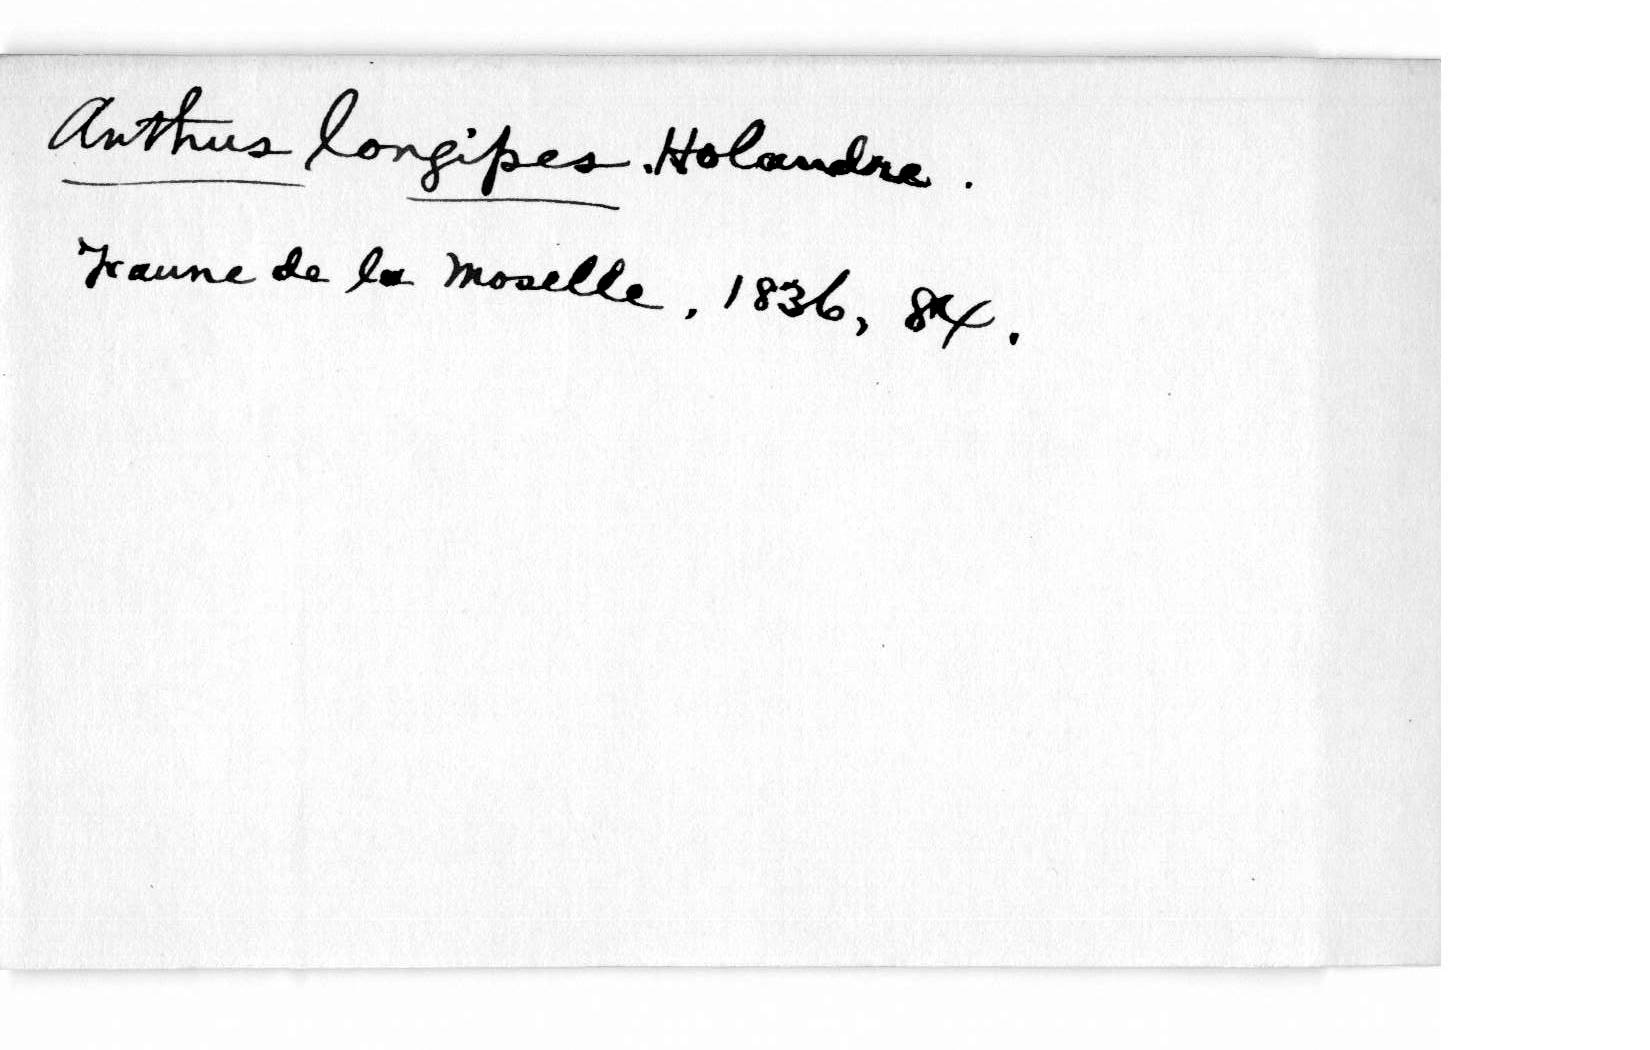 Anthus longipes. Holandre.
Faune de la Moselle, 1836, 84.